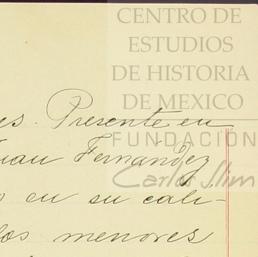 CENTRO DE
ESTUDIOS
DE HISTORIA
DE MEXICO
FUNDACIÓN
Carlos Slim
es. Presente en
Juan Fernández
o en su cali-
los menores